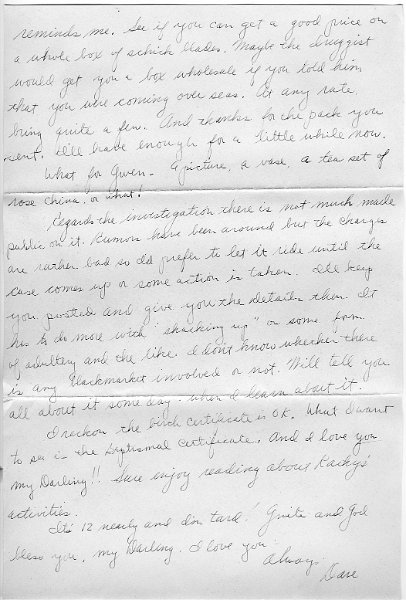 reminds me. See if you can get a good price on
a whole box of schick blades. Maybe the druggist
would get you a box wholesale if you told him
that you were coming over seas. At any rate,
bring quite a few. And thanks for the pack you
sent. I'll have enough for a little while now.
What for Gwen - A picture, a vase, a tea set of
rose china, or what!
Regards the investigation there is not much made
public on it. Rumors have been around but the charges
are rather bad so I'd prefer to let it ride until the
case comes up or some action is taken. I'll keep
you posted and give you the details then. It
has to do more with "shacking up" or some form
of adultery and the like. I don't know whether there
is any Blackmarket involved or not. Will tell you
all about it some day - when I learn about it.
I reckon the birth certificate is OK. What I want
to see is the Baptismal Certificate. And I love you
my Darling!! Sure enjoy reading about Kathy's
activities.
It's 12 nearly and I'm tard! Gnite and God
bless you, my Darling. I love you.
Always,
Dave